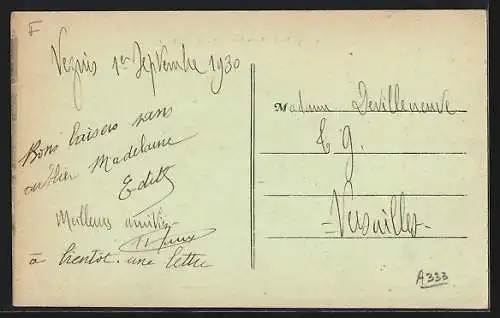 F
1er Septembre 1930
Bons baisers sans
oublier Madelaine
Edith
Meilleures amitiés
à bientot une lettre
Madame Devilleneuve
E g.
Versailles
A333